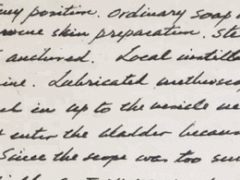 position. Ordinary soap
skin preparation. Ste
anchored. Local instill
ine. Lubricated urethrosco
in up to the vesicle ne
enter the bladder becau
Since the scope was too su